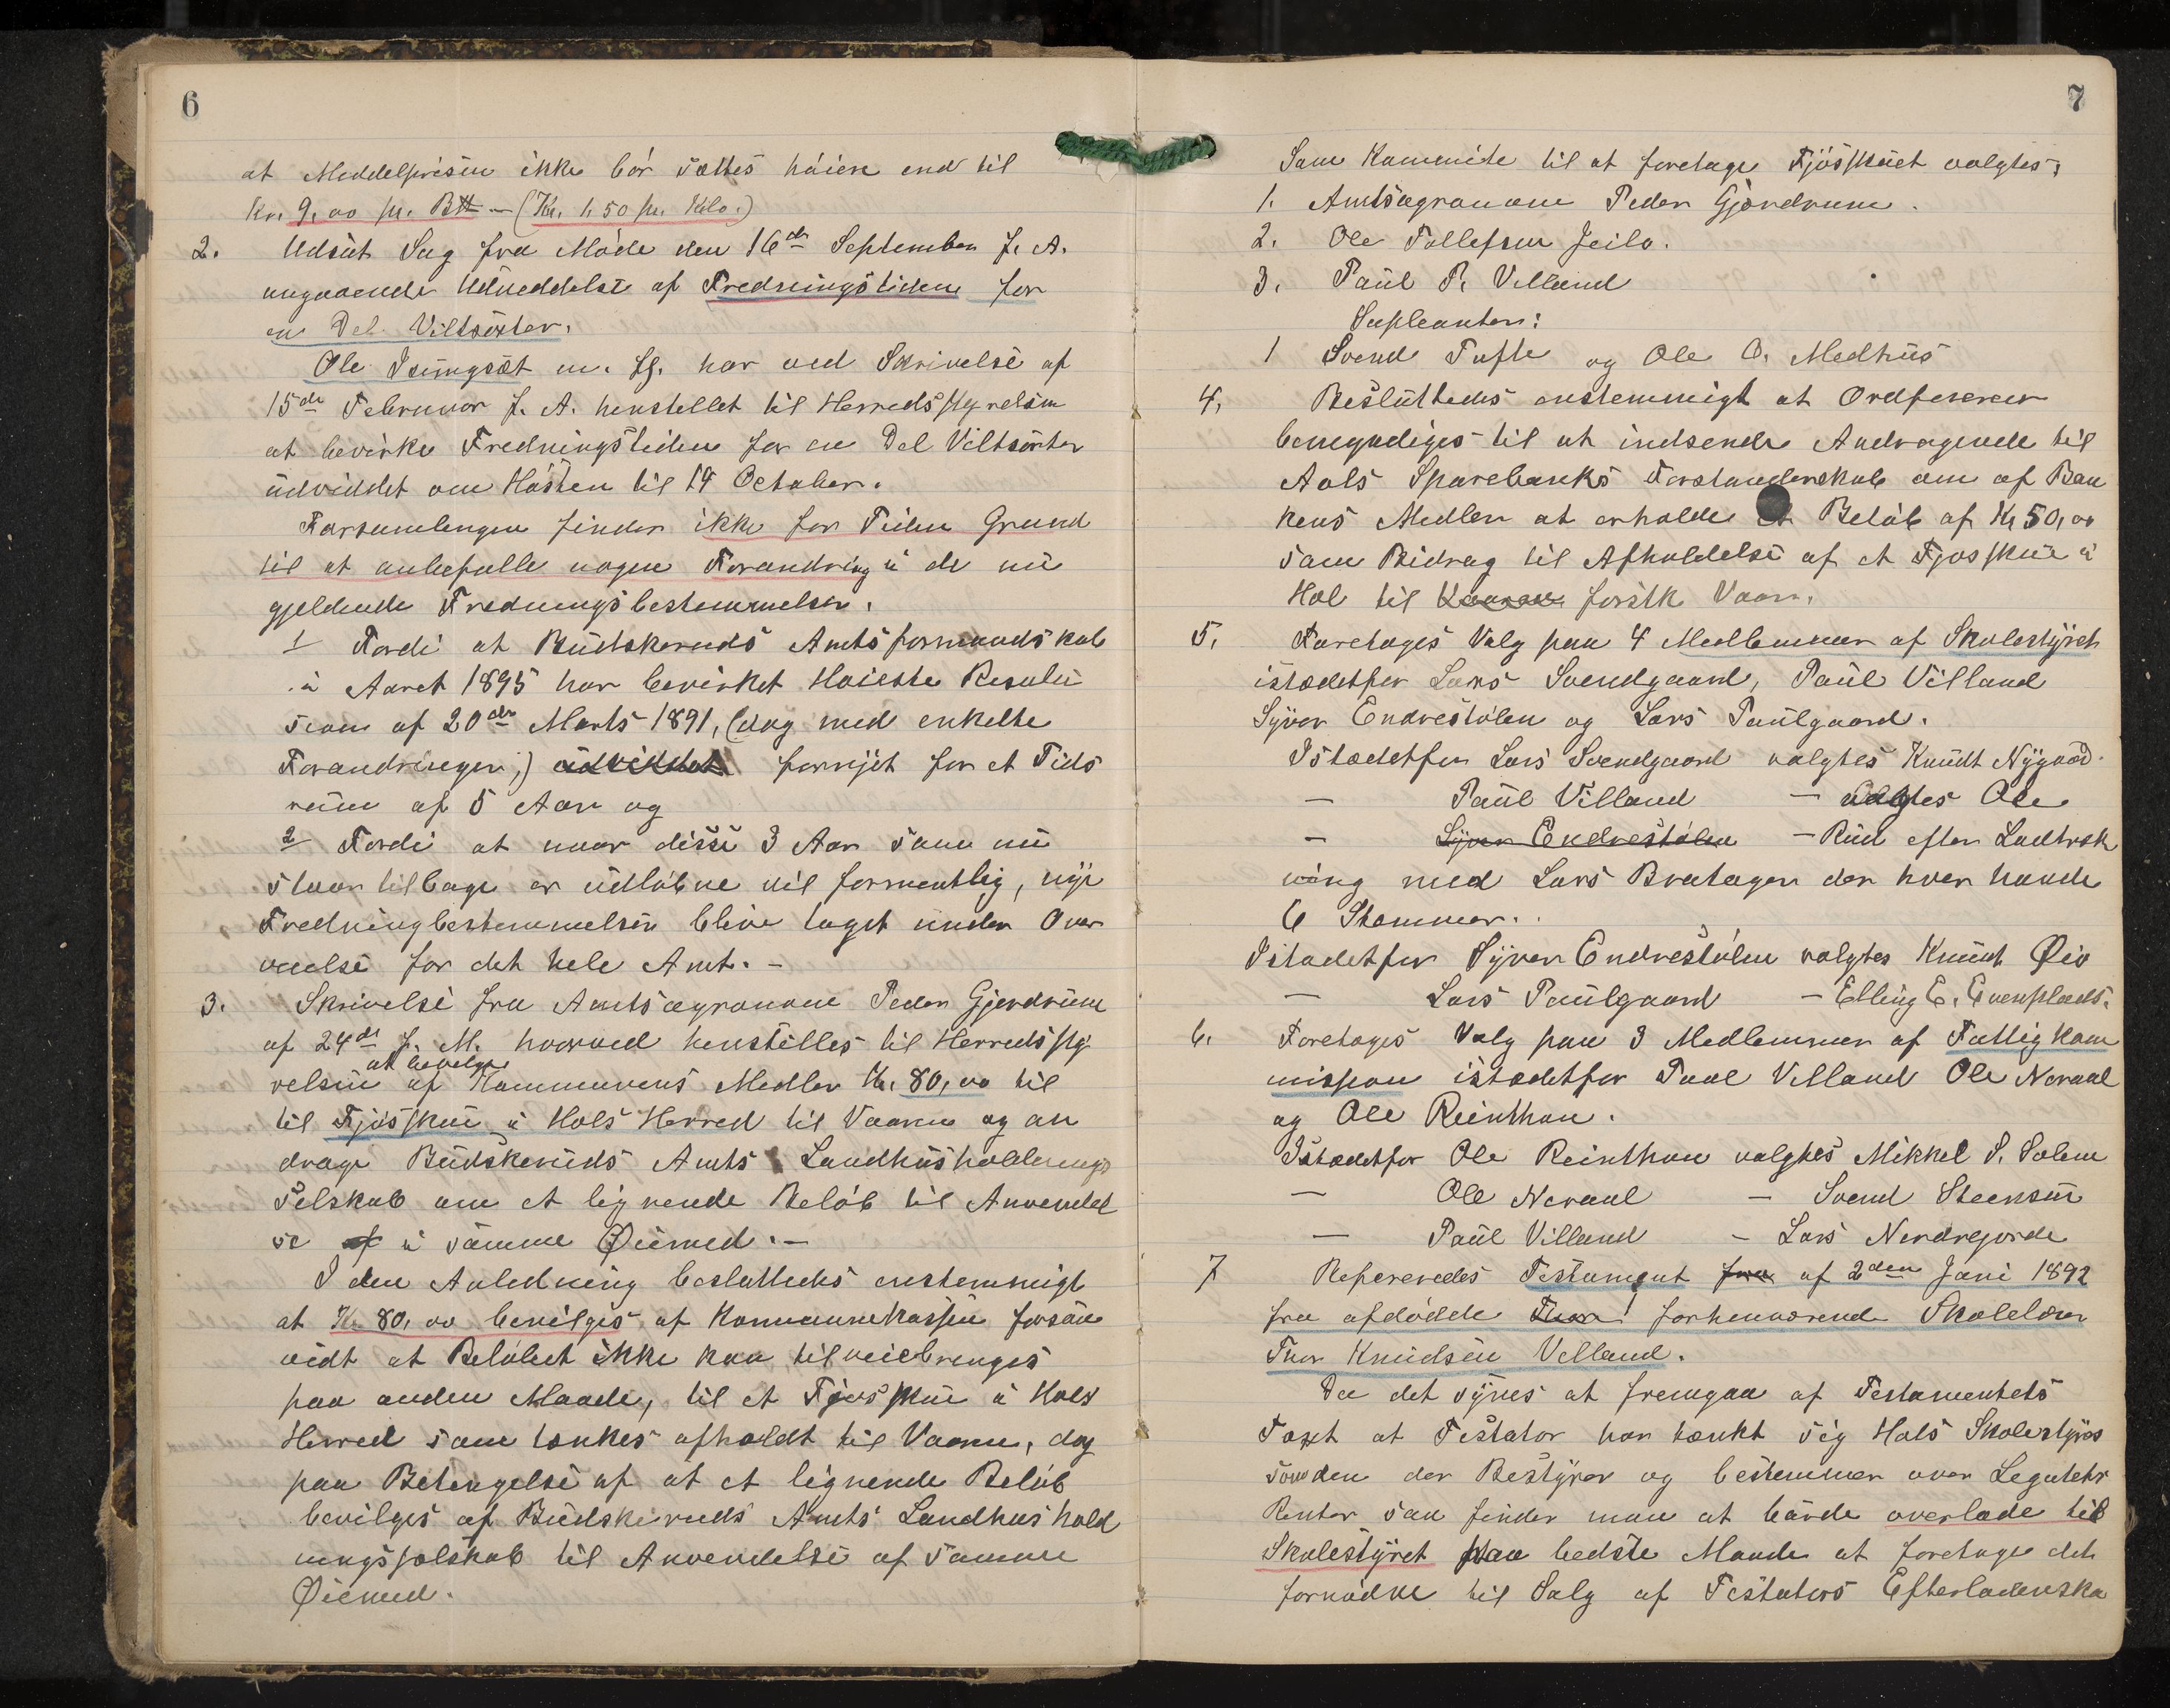 6
at Middelprisen ikke bör sættes höiere end til
Kr. 9,00 pr. B℔ - (Kr. 1,50 pr. Kilo.)
2. Udsat Sag fra Möde den 16de September f. A.
angaaende Udvidelse af Fredningstiden for
en Del Viltsorter.
Ole Isungset m. fl. har ved Skrivelse af
15de Februar f. A. henstellet til Herredsstyrelsen
at bevirke Fredningstiden for en Del Viltsorter
udvidet om Hösten til 14 October.
Forsamlingen finder ikke for Tiden Grund
til at anbefalle nogen Forandring i de nu
gjeldende Fredningsbestemmelser.
1 Fordi at Budskeruds Amtsformandskab
i Aaret 1895 har bevirket Höieste Resolu
sion af 20de Marts 1891, (dog med enkelte
Forandringer,) udvidet fornyet for et Tids
rum af 5 Aar og
2 Fordi at naar disse 3 Aar som nu
staar tilbage er udlöbne vil formentlig, nye
Fredningbestemmelser blive taget under Over
veielse for det hele Amt. -
3. Skrivelse fra Amtsagronom Peder Gjerdrum
af 24de f. M. hvorved henstilles til Herredssty
at bevilge
relsen af Kommunens Medler Kr. 80,00 til
til Fjösskue i Hols Herred til Vaaren og an
drage Budskeruds Amts Landhusholdnings
Selskab om et lignende Belöb til Anvendel
se af i samme Øiemed. -
I den Anledning besluttedes enstemmigt
at Kr. 80,00 bevilges af Kommunekassen forsaa
vidt at Belöbet ikke kan tilveiebringes
paa anden Maade, til et Fjösskue i Hols
Herred som tænkes afholdt til Vaaren, dog
paa Betingelse af at et lignende Belöb
bevilges af Budskeruds Amts Landhushold
ningsselskab til Anvendelse af samme
Øiemed.
7
Som Kommite til at foretage Fjösskuet valgtes:
1. Amtsagronom Peder Gjerdrum.
2. Ole Tollefsen Jeilo.
3. Paul P. Villand
Supleanter:
1 Svend Tufte og Ole O. Medhus
4, Besluttedes enstemmigt at Ordförerer
bemyndiges til at indsende Andragende til
Aals Sparebanks Forstanderskab om af Ban
kens Medler at erholde et Belöb af Kr 50,00
som Bidrag til Afholdelse af et Fjosskue i
Hol til förstk Vaar.
5, Foretages Valg paa 4 Medlemmer af Skolestyret
istædetfor Lars Svendgaard, Paul Villand
Syver Endrestölen og Lars Paulgaard.
Istædetfor Lars Svendgaard valgtes Knudt Nygaard.
— Paul Villand — valgtes Ole
— Syver Endrestölen — Rud efter Lodtræk
ning med Lars Bratager der hver havde
6 Stemmer.
Istædetfor Syver Endrestölen valgtes Knudt Øio
— Lars Paulgaard — Elling E. Evensplads.
6. Foretoges Valg paa 3 Medlemmer af Fattigkom
mission istædetfor Paul Villand Ole Neraal
og Ole Reinthon.
Istædetfor Ole Reinthon valgtes Mikkel S. Solem
— Ole Neraal — Svend Steensen
— Paul Villand — Lars Nerdregorde
7 Refereredes Testament fra af 2den Juni 1892
fra afdödde Thor! forhenværende Skolelærer
Thor Knudsen Velland.
Da det synes at fremgaa af Testamentets
Text at Testator har tænkt sig Hols Skolestyres
som den der Bestyrer og bestemmer over Legatets
Renter saa finder man at burde overlade til
Skolestyret paa bedste Maade at foretage det
fornödne til Salg af Testators Efterladenska